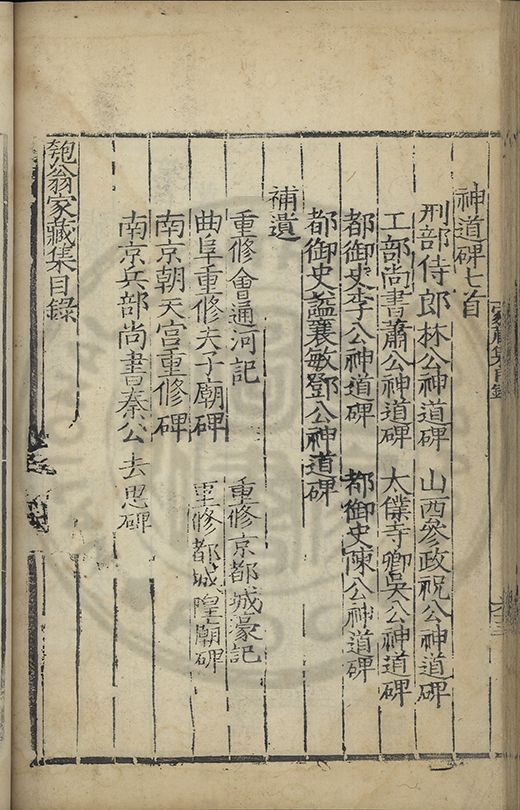 神道碑七首
刑部侍郎林公神道碑　山西參政祝公神道碑
工部尚書蕭公神道碑　太僕寺卿吳公神道碑
都御史李公神道碑　都御史陳公神道碑
都御史謚襄敏鄧公神道碑
補遺
重修會通河記　重修京都城濠記
曲阜重修夫子廟碑　重修都城隍廟碑
南京朝天宮重修碑
南京兵部尚書秦公去思碑
匏翁家藏集目錄